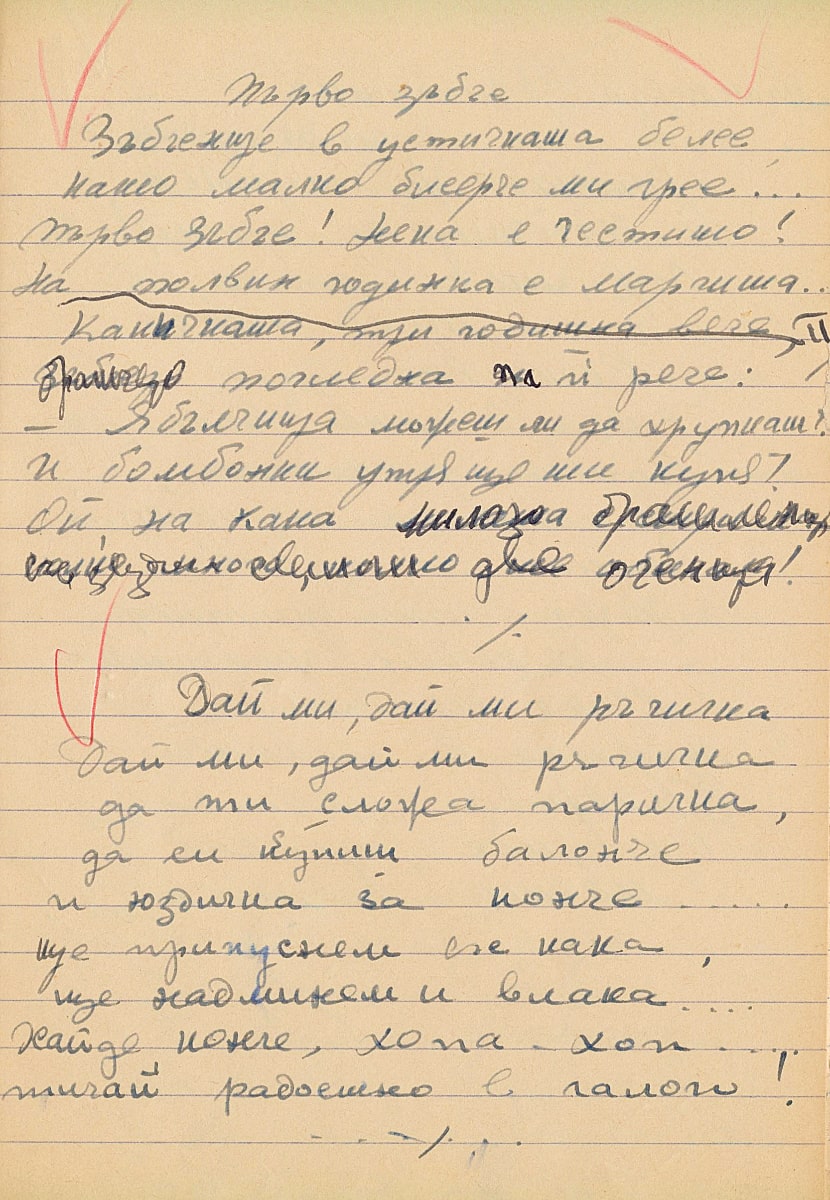 Първо зъбче
Зъбченце в устичката белее
като малко бисерче ми грее...
Първо зъбче! Нека е честито!
На половин годинка е Маргита..
Каничката, три годишна вече, II
братчето погледна па й рече:
- Ябълчица можеш ли да хрупкаш?
И бомбонки утре ще ти купя?
Ой на кака милата
две оченца!
./.
Дай ми, дай ми ръчичка
Дай ми, дай ми ръчичка
да ти сложа паричка,
да си купиш балонче
и юздичка за конче.....
ще припуснем със кака,
ще надминем и влака....
Хайде конче, хопа - хоп....
тичай радостно в галоп!
./.